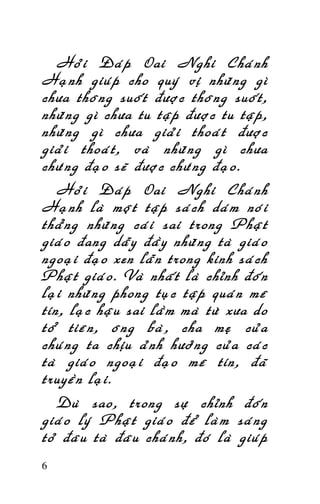 Hỏi Đáp Oai Nghi Chánh
Hạnh giúp cho quý vị những gì
chưa thông suốt được thông suốt,
những gì chưa tu tập được tu tập,
những gì chưa giải thoát được
giải thoát, và những gì chưa
chứng đạo sẽ được chứng đạo.
Hỏi Đáp Oai Nghi Chánh
Hạnh là một tập sách dám nói
thẳng những cái sai trong Phật
giáo đang dẫy đầy những tà giáo
ngoại đạo xen lẫn trong kinh sách
Phật giáo. Và nhất là chỉnh đốn
lại những phong tục tập quán mê
tín, lạc hậu sai lầm mà từ xưa do
tổ tiên, ông bà, cha mẹ của
chúng ta chịu ảnh hưởng của các
tà giáo ngoại đạo mê tín, đã
truyền lại.
Dù sao, trong sự chỉnh đốn
giáo lý Phật giáo để làm sáng
tỏ đâu tà đâu chánh, đó là giúp
6